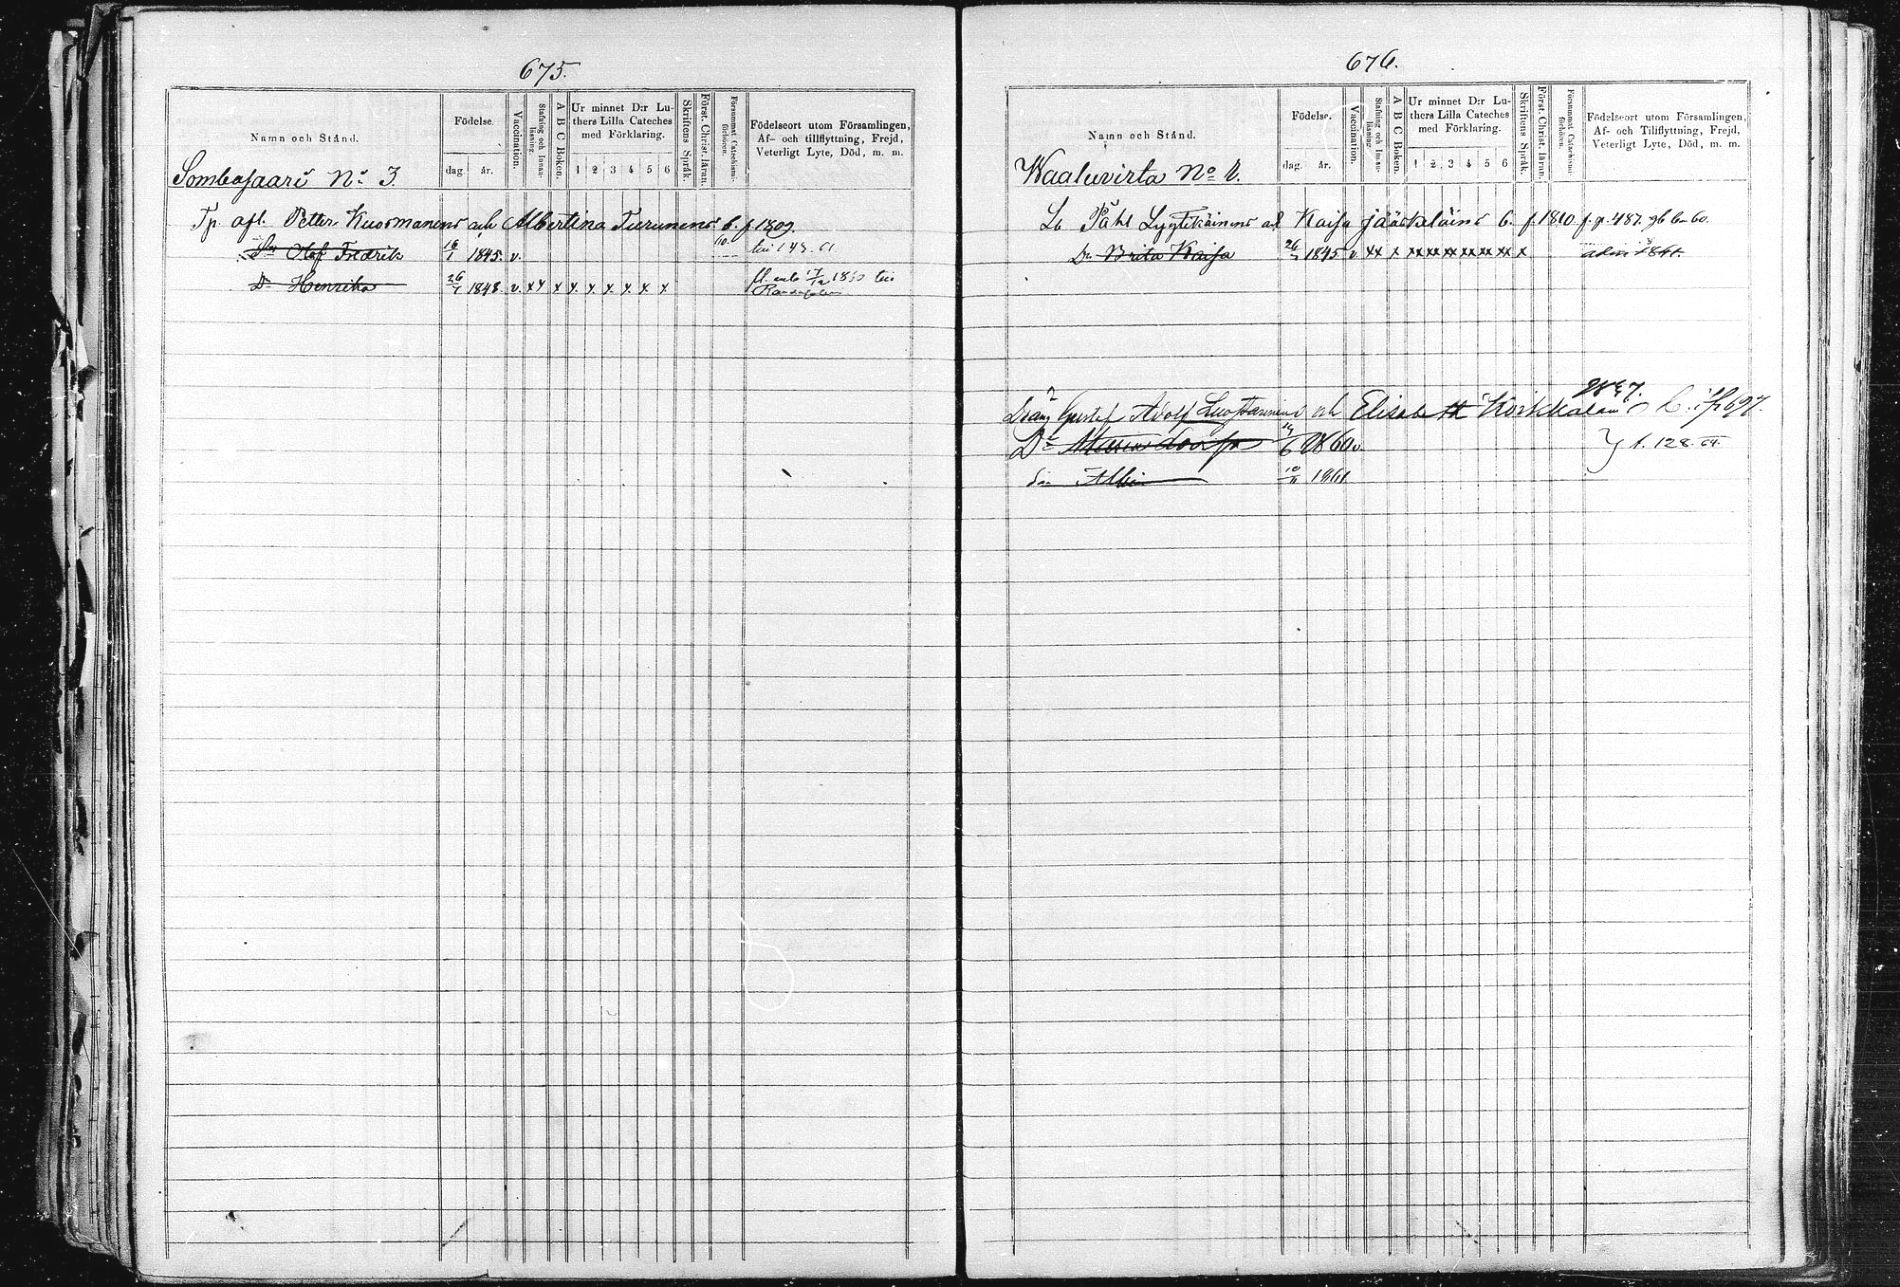 675.
Namn och Stånd.
Födelse.
dag
år.
Vaccination.
Stafning och Innan-läsning.
A B C Boken.
Ur minnet D:r Lu-
thers Lilla Cateches
med Förklaring.
1 2 3 4 5 6
Skriftens Språk.
Först. Christ. läran.
Försummat Catechismi-förhören.
Födelseort utom Församlingen,
Af- och tillflyttning, Frejd,
Veterligt Lyte, Död, m. m.
Sombasaari No 3.
Tp. afl. Petter Kuosmanens och Albertina Turunens b. f. 1809.
Sn Olof Fredrik 16/1 1845. v. 143. 61
Dr Henrika 26/1 1848 v. x x x x x x x x x 17/12 1860
676.
Namn och Stånd.
Födelse.
dag.
år.
Vaccination.
Stafning och Innan-läsning.
A B C Boken.
Ur minnet D:r Lu-
thers Lilla Cateches
med Förklaring.
1 2 3 4 5 6
Skriftens Språk.
Först. Christ. läran.
Försummat Catechismi-förhören.
Födelseort utom Församlingen,
Af- och Tillflyttning, Frejd,
Veterligt Lyte, Död, m. m.
Waaluvirta No 1.
Lb Påhl Lyytikäinens och Kaisa Jääskeläins b. f. 1810 f. p. 487.
Dr Brita Kaisa 26 1845 v. xx x xx xx xx xx xx xx x
Gustaf Adolf och Elisabeth b. 697.
Dr 6 1860 v. 1. 128. 64.
Sn Albin 10/11 1861